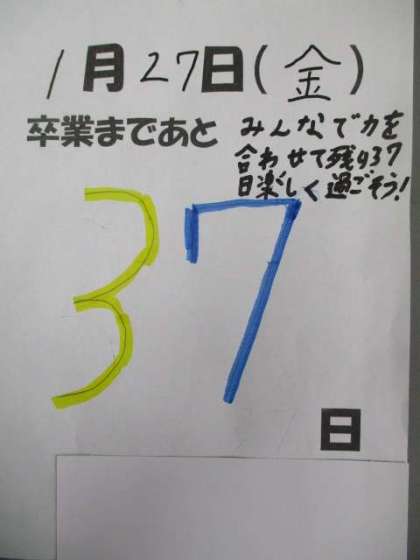 1月27日(金)
卒業まであと
みんなで力を
合わせて残り37
日楽しく過ごそう!
37
日